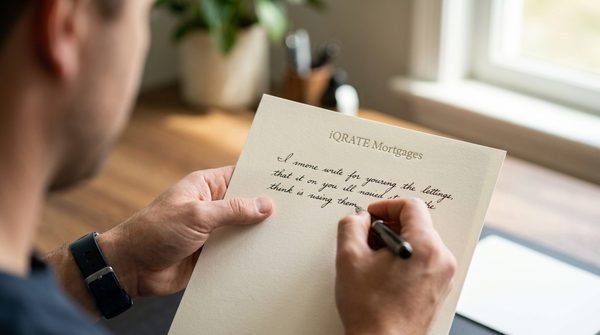 iQRATE Mortgages
I smone write for yoursing the lettings,
that it on you ill naued
think is using them